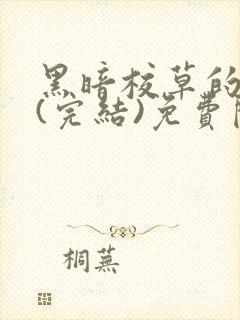 黑暗校草的
(完結)免費
桐蕪